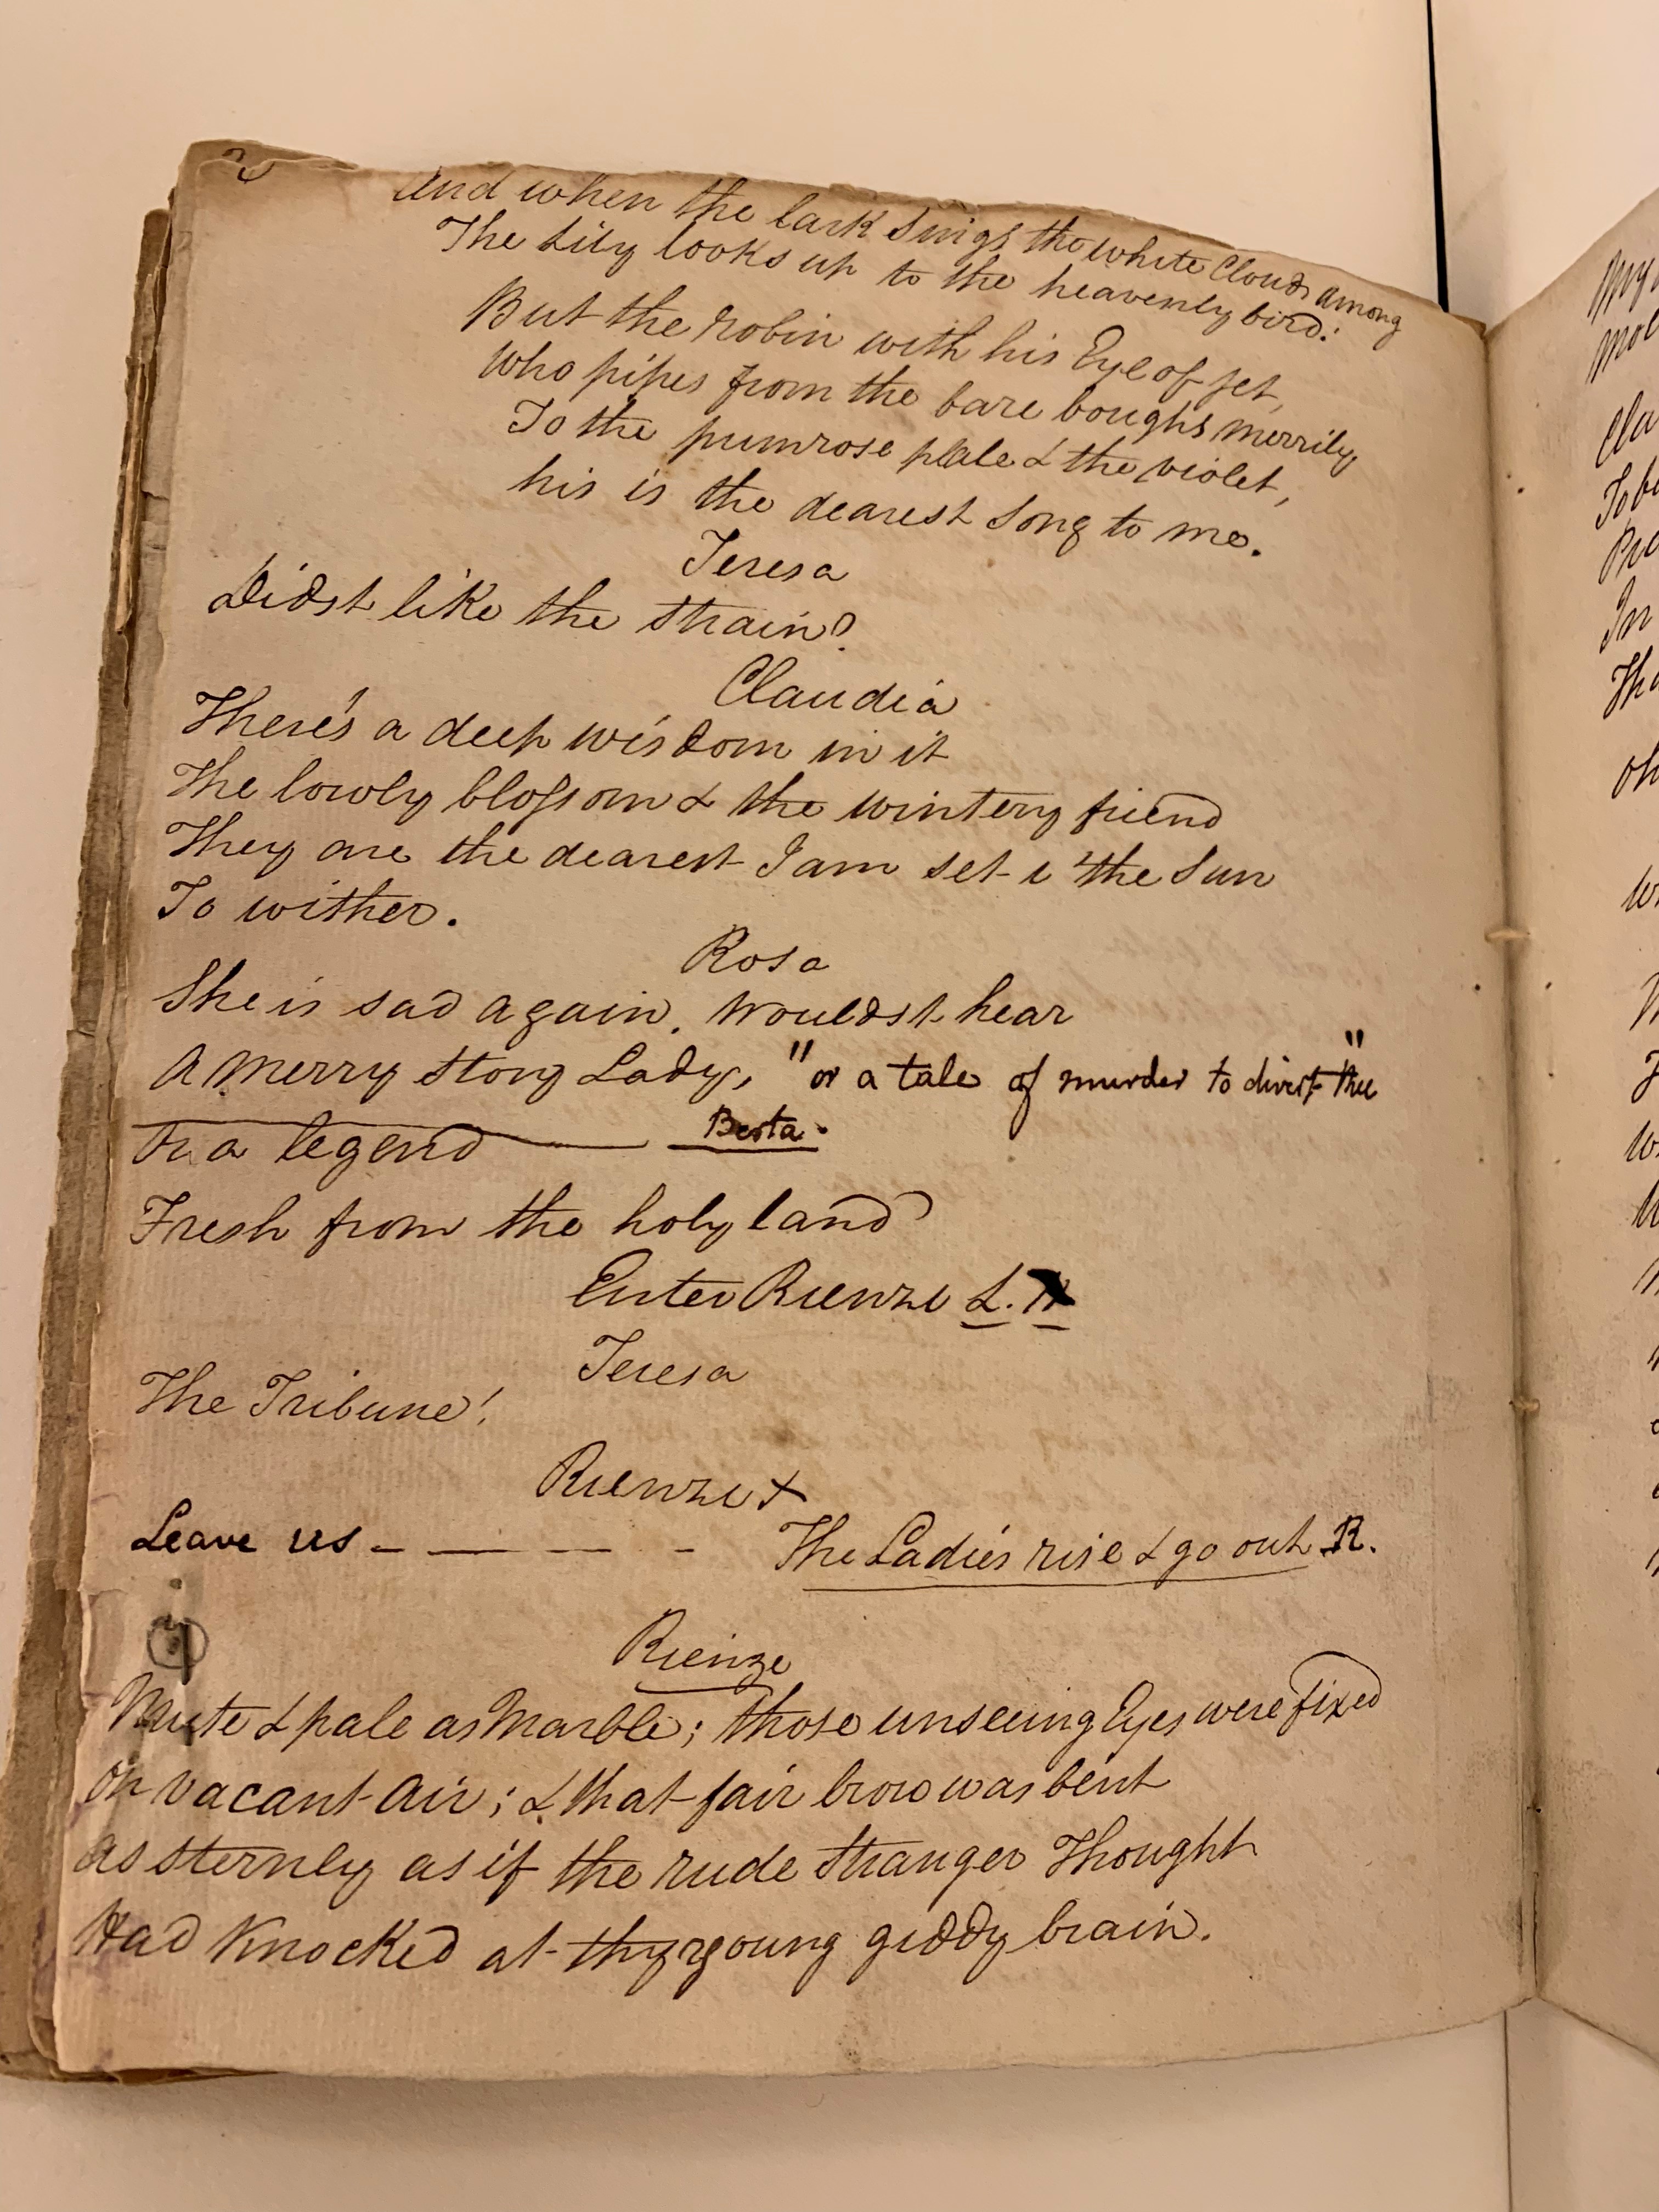 2
And when the lark sings the white Clouds among
The Lily looks up to the heavenly bird:
But the robin with his Eye of jet,
Who pipes from the bare boughs merrily,
To the pumrose pale & the violet,
his is the dearest Song to me.
Teresa
Didst like the strain?
Claudia
There's a deep wisdom in it
The lowly blossom & the wintery friend
They are the dearest I am set i' the Sun
To wither.
Rosa
She is sad again. Wouldst hear
A merry story Lady, "or a tale of murder to divert thee"
Berta.
Or a legend
Fresh from the holy land
Enter Rienzi L.
Teresa
The Tribune!
Rienzi X
Leave us - — — - The Ladies rise & go out R.
Rienze
Mute & pale as Marble; those unseeing Eyes were fixed
On vacant Air; & that fair brow was bent
As sternly as if the rude stranger Thought
Had Knocked at thy young giddy brain.
My
Cla
To be
In
Tha
Oh